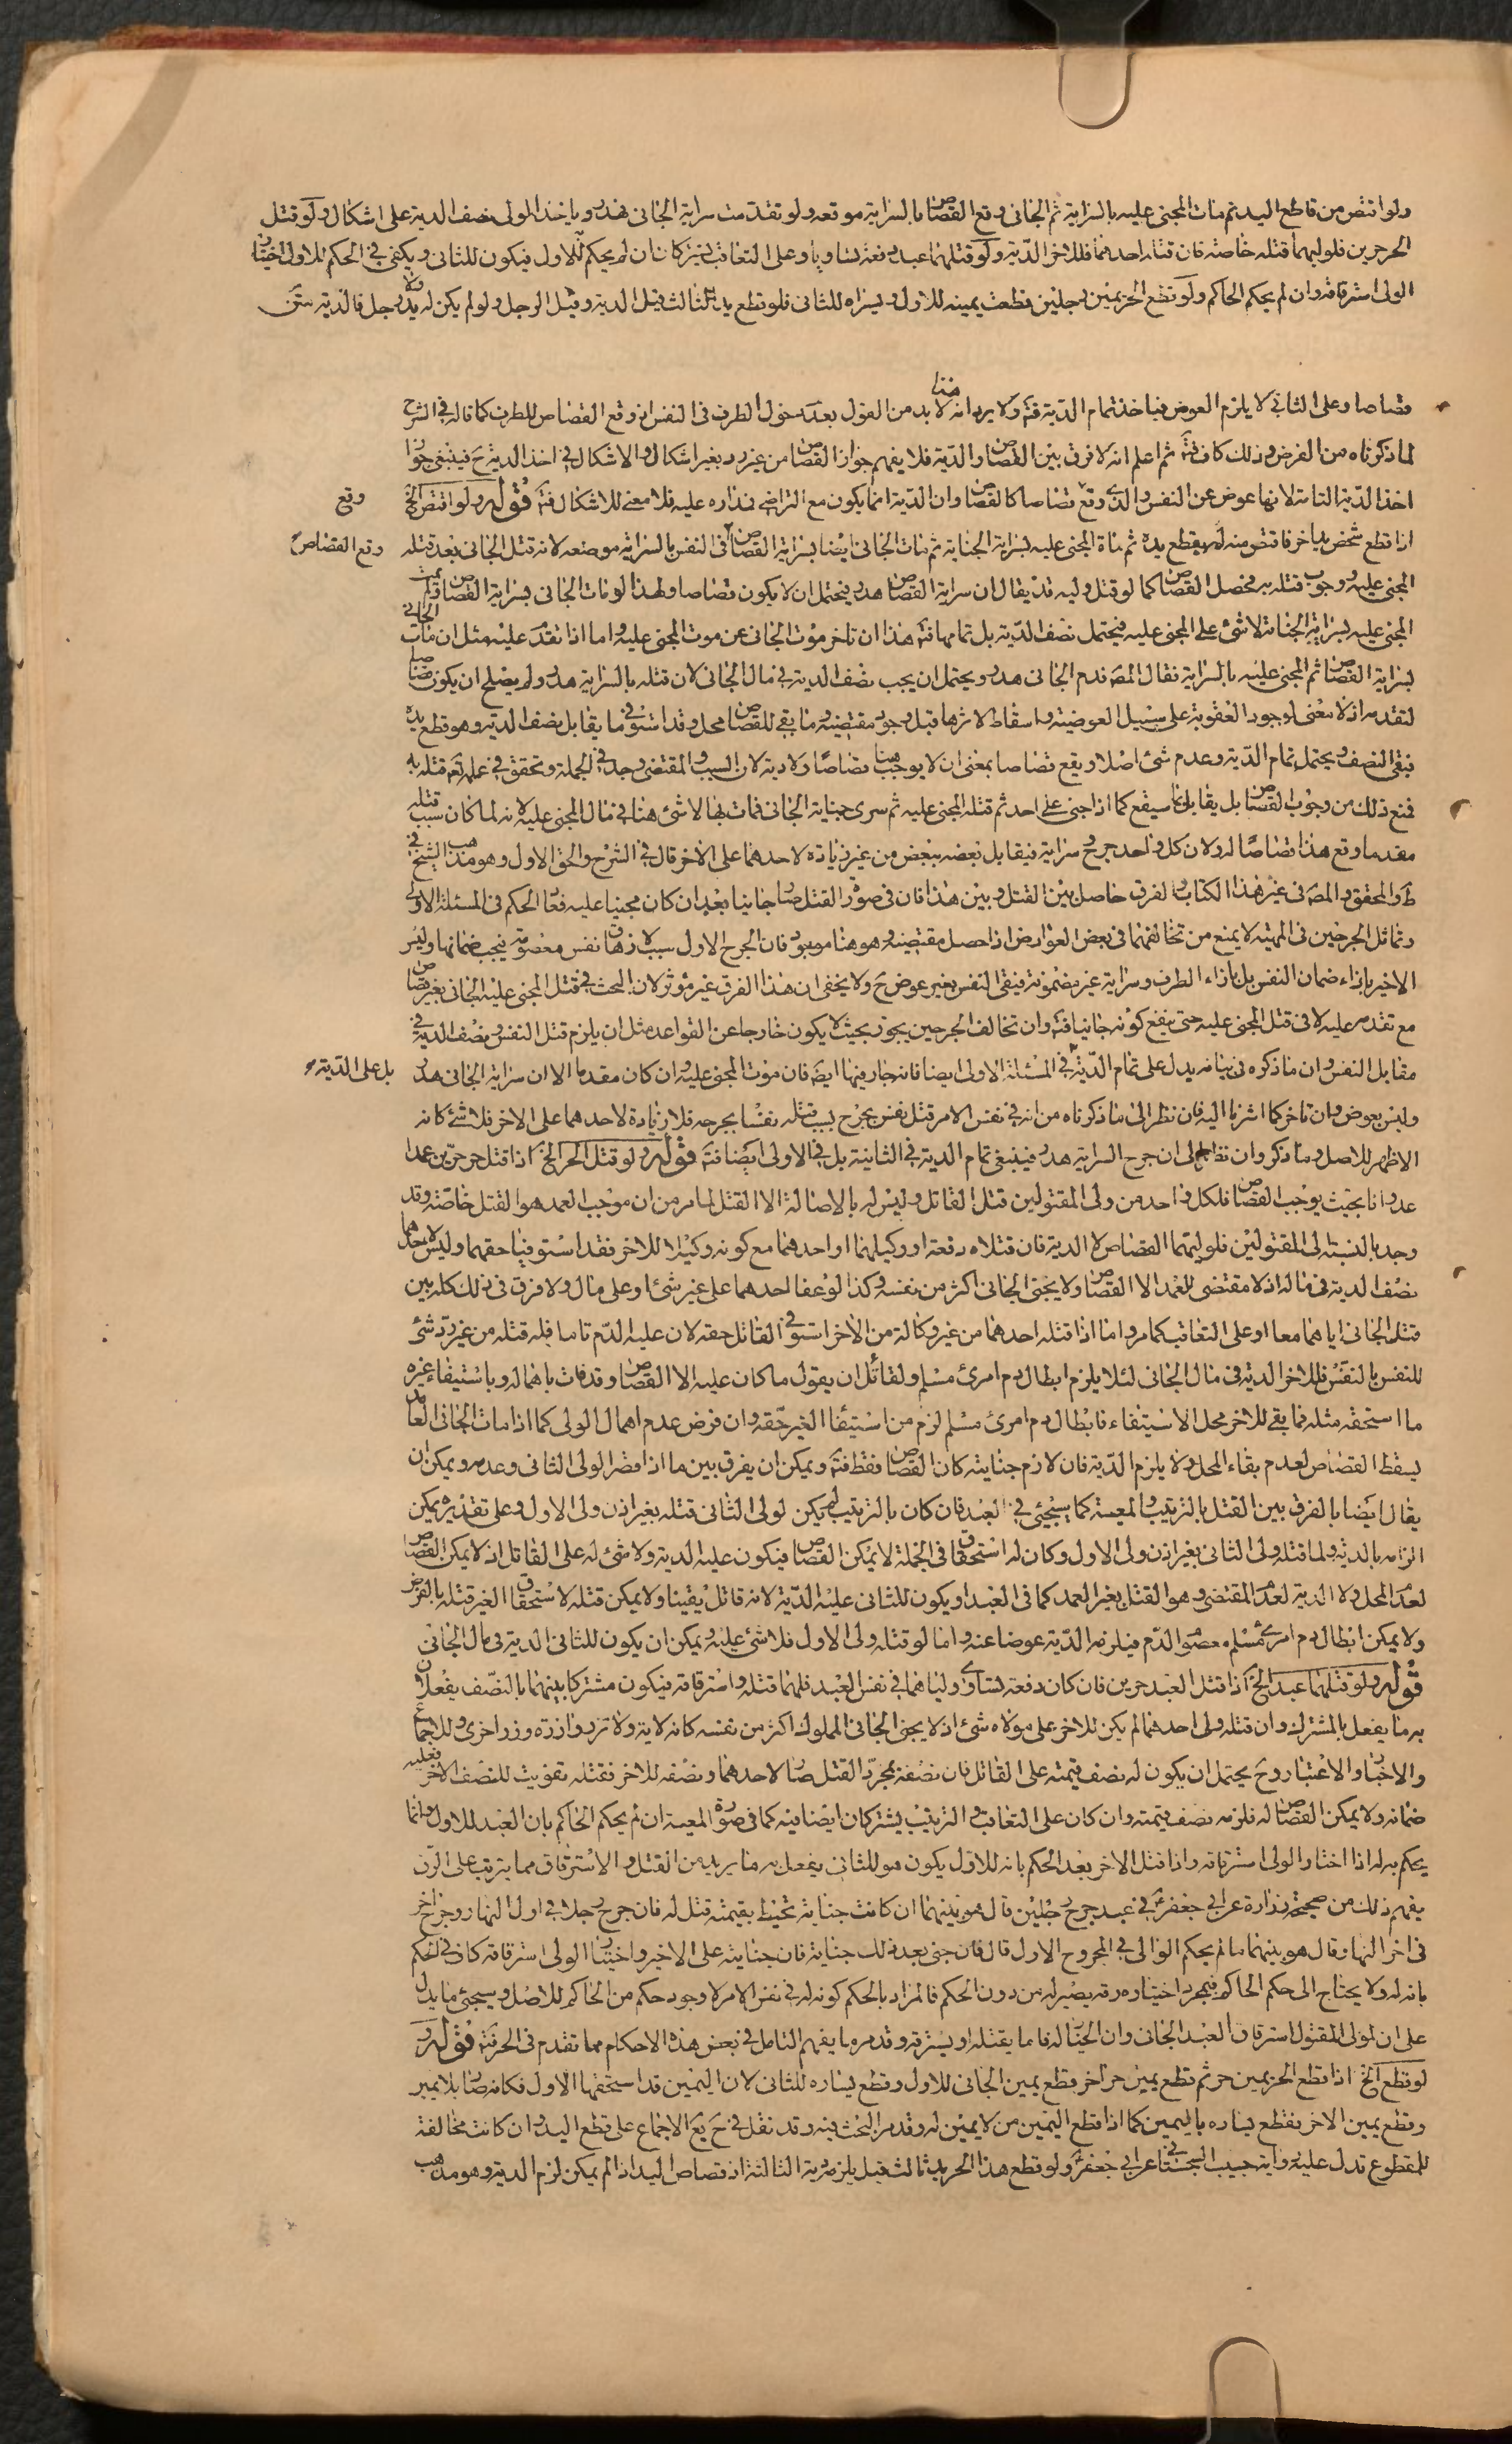 ولو اقتص من قاطع اليد ثم مات المجنى عليه بالسراية ثم الجانى وقع القصاص بالسراية موقعه ولو تقدمت سراية الجانى فهدر وياخذ الولى نصف الدية على اشكال ولو قتل
الحر حرين فلوليهما قتله خاصة فان قتله احدهما فللاخر الدية ولو قتلهما عبد دفعة تساويا وعلى التعاقب يشتركان ان لم يحكم به للاول فيكون للثانى ويكفى في الحكم للاول اختيار
الولى استرقاقه وان لم يحكم الحاكم ولو قطع الحر يمين رجلين قطعت يمينه للاول ويسراه للثانى فلو قطع يد الثالث قيل الدية وقيل الرجل ولو لم يكن له يد ولا رجل فالدية
قصاصا وعلى الثانى لا يلزم العوض فياخذ تمام الدية فتة ولا يرد انه لا بد هنا من القول بعدم دخول الطرف فى النفس اذ وقع القصاص للطرف كما قاله في الشرح
لما ذكرناه من الفرض وذلك كاف فتة ثم اعلم انه لا فرق بين القصاص والدية فلا يفهم جواز القصاص من غير رد بغير اشكال والاشكال في اخذ الدية ح فينبغى جواز
اخذ الدية التامة لانها عوض عن النفس والذى وقع قصاصا كالقصاص وان الدية انما يكون مع التراضي فمداره عليه فلا معنى للاشكال فتة قوله ولو اقتص الخ
وقع
اذا قطع شخص يد اخر فاقتص منه بقطع يده ثم مات المجنى عليه بسراية الجناية ثم مات الجانى ايضا بسراية القصاص فى النفس بالسراية موضعه لانه قتل الجانى بعد قتله
وقع القصاص
المجنى عليه ووجوب قتله به فحصل القصاص كما لو قتل وليه قد يقال ان سراية القصاص هدر فيحتمل ان لا يكون قصاصا ولهذا لو مات الجانى بسراية القصاص ولم يمت
المجنى عليه بسراية الجناية لا شئ على المجنى عليه فيحتمل نصف الدية بل تمامها فتة هذا ان تاخر موت الجانى عن موت المجنى عليه واما اذا تقدم عليه مثل ان مات الجانى
بسراية القصاص ثم المجنى عليه بالسراية فقال المصـ فدم الجانى هدر ويحتمل ان يجب نصف الدية في مال الجانى لان قتله بالسراية هدر ولم يصلح ان يكون قصاصا
لتقدمه اذ لا معنى لوجود العقوبة على سبيل العوضية واسقاط لاثرها قبل وجود مقتضيه وما بقى للقصاص محل وقد استوفى ما يقابل نصف الدية وهو قطع يده
فبقى النصف ويحتمل تمام الدية وعدم شئ اصلا ويقع قصاصا بمعنى ان لا يوجب هنا قصاصا ولا دية لان السبب والمقتضى وجد في الجملة وتحقق في علمه تعـ قتله به
فمنع ذلك من وجوب القصاص بل يقابل بما سيقع كما اذا جنى على احد ثم قتله المجنى عليه ثم سرى جناية الجانى فمات بها لا شئ هنا في مال المجنى عليه لانه لما كان سبب قتله
مقدما وقع هذا قصاصا له ولان كل واحد جرح سراية فيقابل بعضه ببعض من غير زيادة لاحدهما على الاخر قال في الشرح والحق الاول وهو مذهب الشيخ في
ط والمحقق والمصـ فى غير هذا الكتاب والفرق حاصل بين القتل وبين هذا فان فى صورة القتل صار جانيا بعد ان كان مجنيا عليه فعاد الحكم فى المسئلة الاولى
وتماثل الجرحين فى المهية لا يمنع من تخالفهما فى بعض العوارض اذا حصل مقتضيه وهو هنا موجود فان الجرح الاول سبب لازهاق نفس معصومة فيجب ضمانها وليس
الاخير بازاء ضمان النفس بل بازاء الطرف وسراية غير مضمونة فيبقى النفس بغير عوض ح ولا يخفى ان هذا الفرق غير مؤثر لان البحث في قتل المجنى عليه الجانى بغير قصاص
مع تقدمه عليه لا فى قتل المجنى عليه حتى ينفع كونه جانيا فتة وان تخالف الجرحين يجوز بحيث لا يكون خارجا عن القواعد مثل ان يلزم قتل النفس ونصف الدية في
مقابل النفس وان ما ذكره فى بيانه يدل على تمام الدية في المسئلة الاولى ايضا فانه جار فيها ايضـ فان موت المجنى عليه وان كان مقدما الا ان سراية الجانى هدر
بل على الدية
وليس بعوض وان تاخر كما اشرنا اليه فان نظر الى ما ذكرناه من انه في نفس الامر قتل نفس بجرح بسبب قتله نفسا بجرحه فلا زيادة لاحدهما على الاخر فلا شئ كانه
الاظهر للاصل وما ذكر وان نظر الى ان جرح السراية هدر فينبغى تمام الدية في الثانية بل في الاولى ايضا فتة قوله ولو قتل الحر الخ اذا قتل حر حرين عمدا
عدوانا بحيث يوجب القصاص فلكل واحد من ولى المقتولين قتل القاتل وليس له بالاصالة الا القتل لما مر من ان موجب العمد هو القتل خاصة وقد
وجد بالنسبة الى المقتولين فلوليهما القصاص لا الدية فان قتلاه دفعة او وكيلهما او احدهما مع كونه وكيلا للاخر فقد استوفيا حقهما وليس لاحدهما
نصف الدية فى ماله اذ لا مقتضى للعمد الا القصاص ولا يجنى الجانى اكثر من نفسه وكذا لو عفا احدهما على غير شئ او على مال ولا فرق فى ذلك كله بين
قتل الجانى اياهما معا او على التعاقب كما مر واما اذا قتله احدهما من غير وكالة من الاخر استوفى القاتل حقه لان عليه الدم تاما فله قتله من غير رد شئ
للنفس بالنفس وللاخر الدية فى مال الجانى لئلا يلزم ابطال دم امرئ مسلم ولقائل ان يقول ما كان عليه الا القصاص وقد فات باهماله وباستيفاء غيره
ما استحقه مثله فما بقى للاخر محل الاستيفاء فابطال دم امرئ مسلم لزم من استيفاء الغير حقه وان فرض عدم اهمال الولى كما اذا مات الجانى العامد
يسقط القصاص لعدم بقاء المحل ولا يلزم الدية فان لازم جنايته كان القصاص فقط فتة ويمكن ان يفرق بين ما اذا قصر الولى الثانى وعدمه ويمكن ان
يقال ايضا بالفرق بين القتل بالترتيب والمعية كما سيجئ في العبد فان كان بالترتيب لم يكن لولى الثانى قتله بغير اذن ولى الاول وعلى تقديره يمكن
الزامه بالدية ولما قتله ولى الثانى بغير اذن ولى الاول وكان له استحقاق في الجملة لا يمكن القصاص فيكون عليه الدية ولا شئ له على القاتل اذ لا يمكن القصاص
لعدم المحل ولا الدية لعدم المقتضى وهو القتل بغير العمد كما فى العبد او يكون للثانى عليه الدية لانه قاتل يقينا ولا يمكن قتله لاستحقاق الغير قتله بالفرض
ولا يمكن ابطال دم امرئ مسلم معصوم الدم فيلزمه الدية عوضا عنه واما لو قتله ولى الاول فلا شئ عليه ويمكن ان يكون للثانى الدية فى مال الجانى
قوله ولو قتلهما عبد الخ اذا قتل العبد حرين فان كان دفعة تساوى ولياهما في نفس العبد فلهما قتله واسترقاقه فيكون مشتركا بينهما بالنصف يفعلان
به ما يفعل بالمشترك وان قتله ولى احدهما لم يكن للاخر على مولاه شئ اذ لا يجنى الجانى المملوك اكثر من نفسه كانه لاية ولا تزر وازرة وزر اخرى وللاجماع
والاخبار والاعتبار وح يحتمل ان يكون له نصف قيمته على القاتل فان نصفه بمجرد القتل صار لاحدهما ونصفه للاخر فقتله تفويت للنصف الاخر فعليه
ضمانه ولا يمكن القصاص له فلزمه نصف قيمته وان كان على التعاقب والترتيب يشتركان ايضا فيه كما فى صورة المعية ان لم يحكم الحاكم بان العبد للاول وانما
يحكم به له اذا اختار الولى استرقاقه واذا قتل الاخر بعد الحكم بانه للاول يكون هو للثانى يفعل به ما يريد من القتل والاسترقاق مما يترتب على الرق
يفهم ذلك من صحيحة زرارة عن ابي جعفر ع في عبد جرح رجلين قال هو بينهما ان كانت جنايته تحيط بقيمته قيل له فان جرح رجلا في اول النهار وجرح اخر
فى اخر النهار قال هو بينهما ما لم يحكم الوالى في المجروح الاول قال فان جنى بعد ذلك جناية فان جنايته على الاخير واختيار الولى استرقاقه كاف في الحكم
بانه له ولا يحتاج الى حكم الحاكم فبمجرد اختياره رقه يصير له من دون الحكم فالمراد بالحكم كونه له في نفس الامر لا وجود حكم من الحاكم للاصل وسيجئ ما يدل
على ان لولى المقتول استرقاق العبد الجانى وان الخيار له فاما يقتله او يسترقه وقد مر ما يفهم التامل في بعض هذه الاحكام مما تقدم فى الحر فتة قوله و
لو قطع الخ اذا قطع الحر يمين حر ثم قطع يمين حر اخر قطع يمين الجانى للاول وقطع يساره للثانى لان اليمين قد استحقها الاول فكانه صار بلا يمين
وقطع يمين الاخر فقطع يساره باليمين كما اذا قطع اليمين من لا يمين له وقد مر البحث فيه وقد نقل في ح يع الاجماع على قطع اليد وان كانت مخالفة
للمقطوع تدل عليه رواية حبيب السجستانى عن ابي جعفر ع ولو قطع هذا الحر يد ثالث قيل يلزم دية الثالثة اذ قصاص اليد اذا لم يمكن لزم الدية وهو مذهب